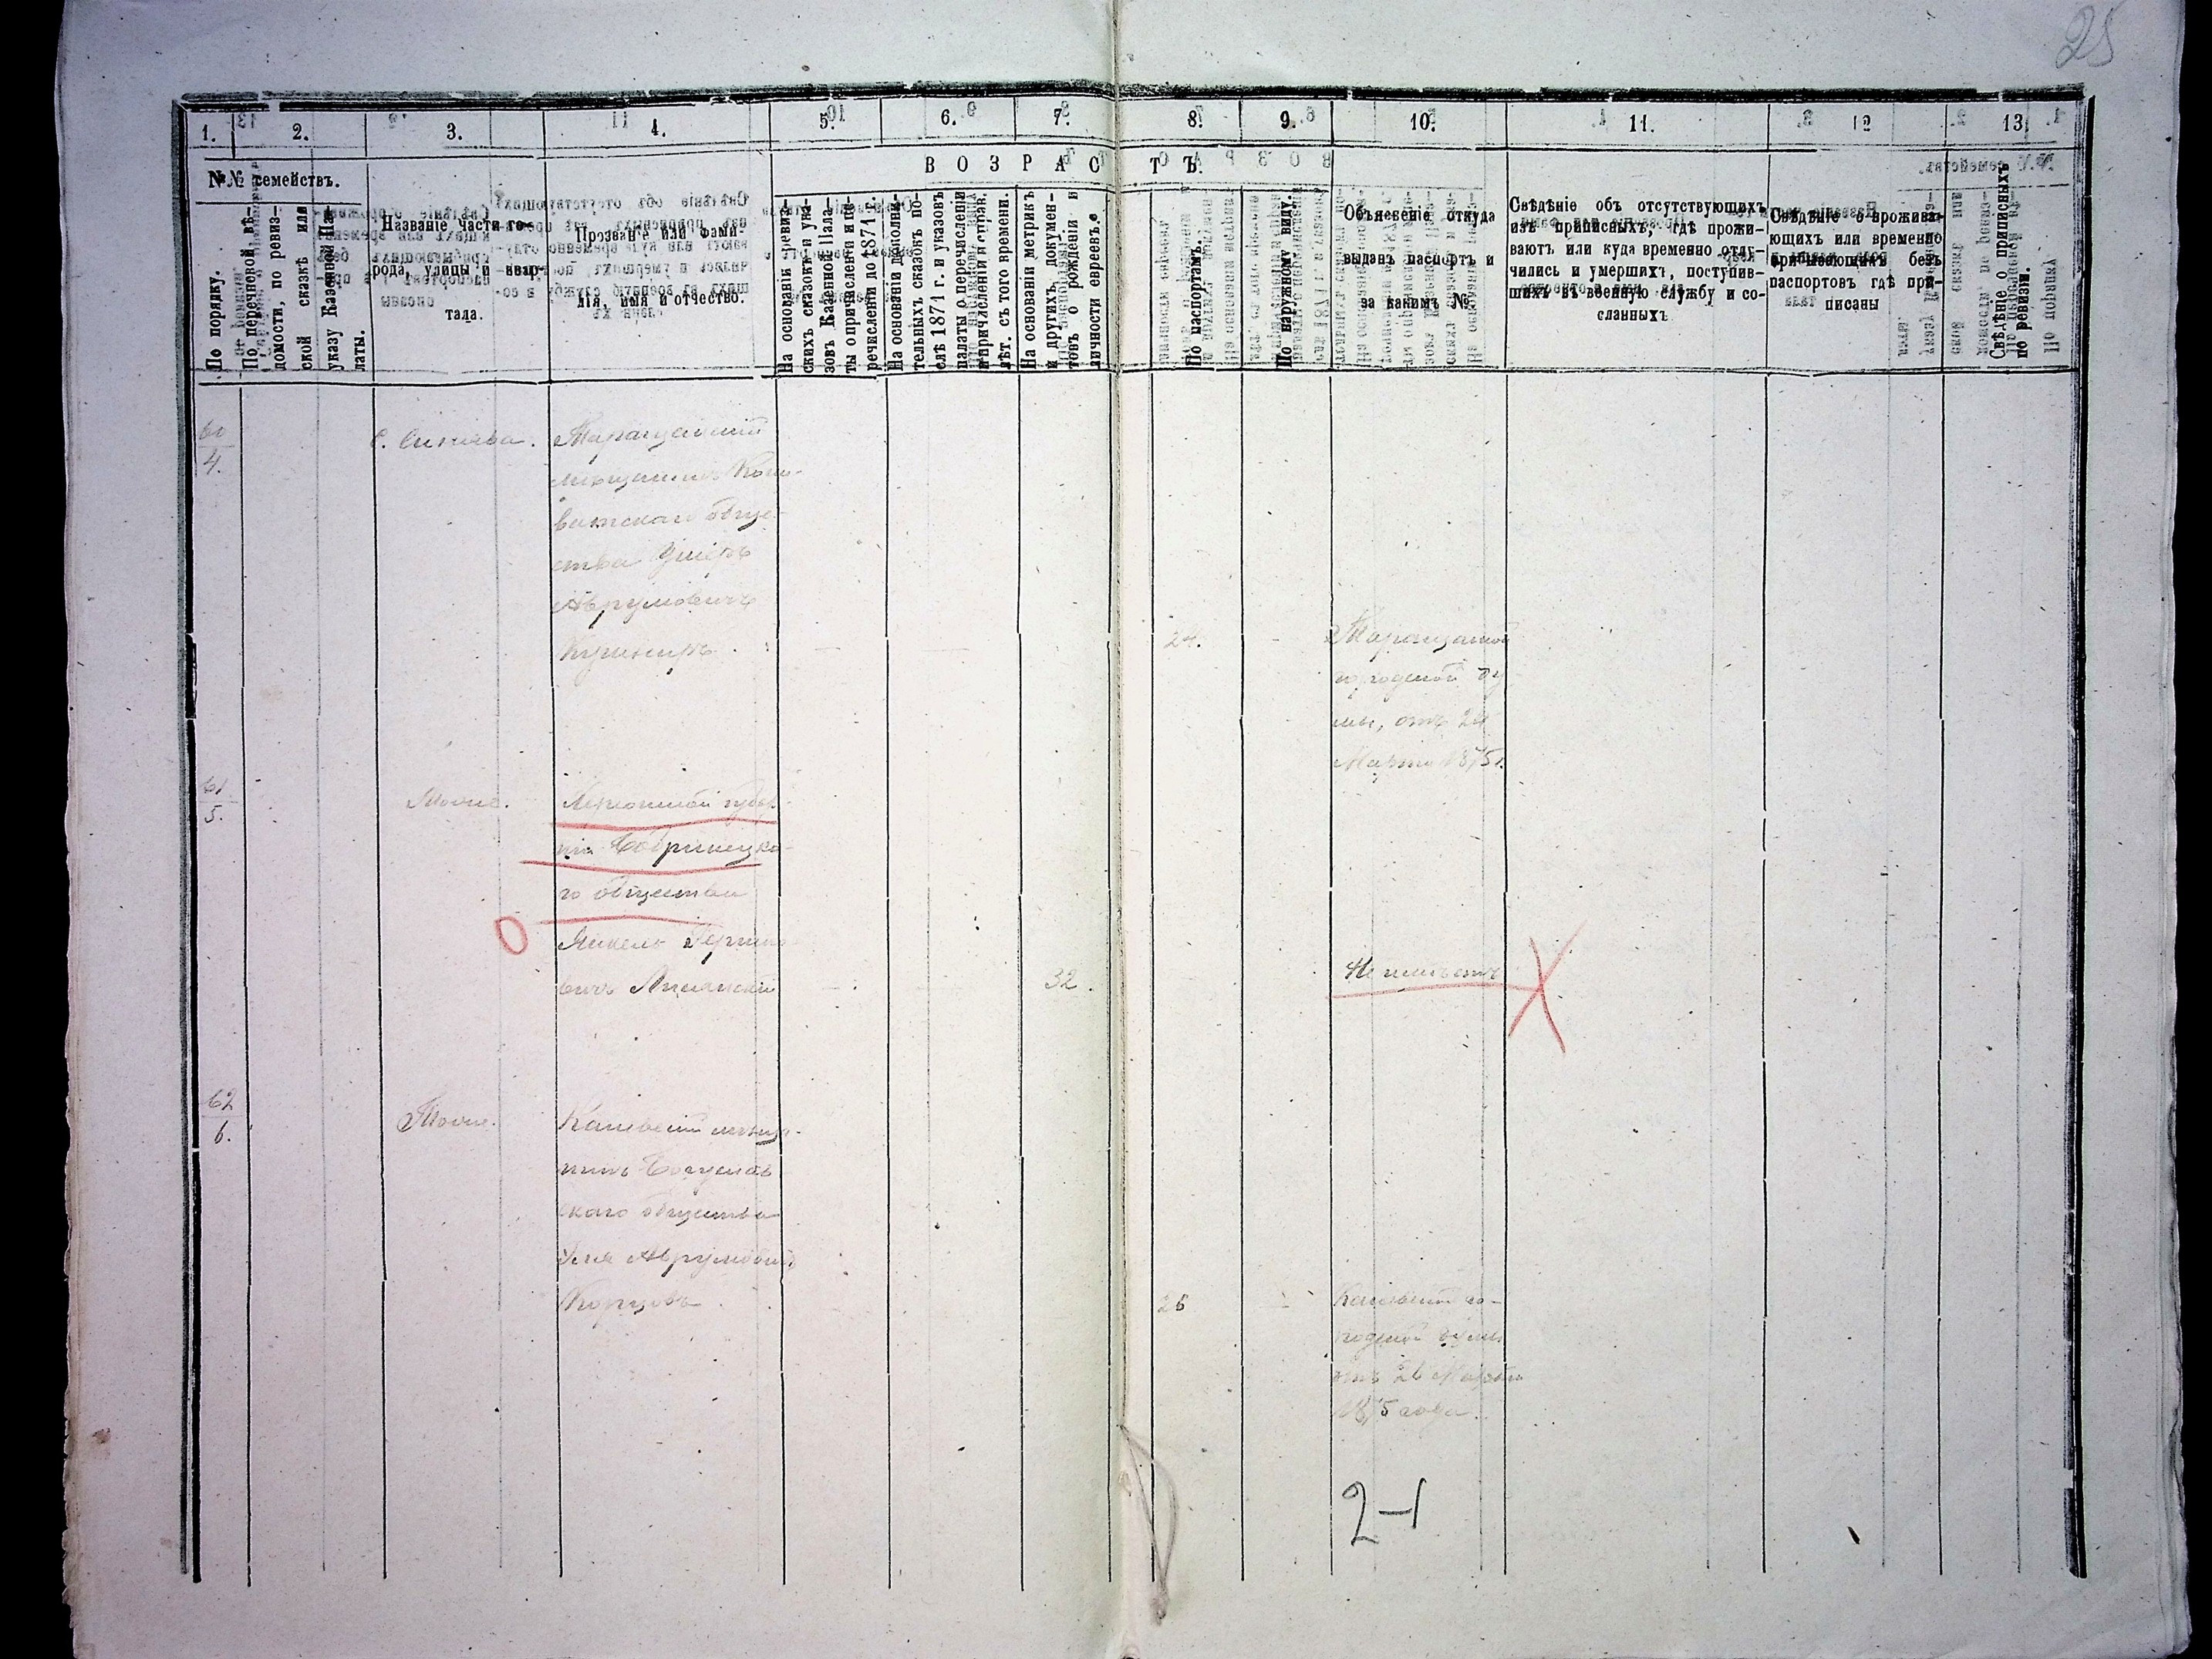 25
1. 2. 3. 4. 5. 6. 7. 8. 9. 10. 11. 12 13
ВОЗРАСТЪ.
№№ семействъ.
По порядку.
По перечневой вѣ-
домости, по ревиз-
ской сказкѣ или
указу Казенной Па-
латы.
Названіе части го-
рода, улицы и квар-
тала.
Прозваніе или фами-
лія, имя и отчество.
На основаніи ревиз-
скихъ сказокъ и ука-
зовъ Казенной Пала-
ты о причисленіи и пе-
речисленіи до 1871 г.
На основаніи дополни-
тельныхъ сказокъ по-
слѣ 1871 г. и указовъ
палаты о перечисленіи
и причисленіи справ.
лѣт. съ того времени.
На основаніи метрикъ
и другихъ докумен-
товъ о рожденіи и
личности евреевъ.
По паспортамъ.
По наружному виду.
Объясненіе откуда
выданъ паспортъ и
за какимъ №
Свѣдѣніе объ отсутствующихъ
изъ приписныхъ, гдѣ прожи-
ваютъ или куда временно отлу-
чились и умершихъ, поступив-
шихъ въ военную службу и со-
сланныхъ
Свѣдѣніе о прожива-
ющихъ или временно
паспортовъ гдѣ при-
писаны
Свѣдѣніе о приписныхъ
по ревизіи.
60
4.
С. Синява.
Таращанскій
мѣщанинъ
общe-
ства
Аврумовичъ
Кушниръ.
24.
Таращанской
городской ду
мы, отъ 24
Марта 1875 г.
61
5.
Тоже.
Херсонской губер-
ніи Бобринецка-
го общества
Янкель Герш­ко-
вичъ Лисянскій
32.
Не имѣетъ
62
6.
Тоже.
Каневскій мѣща-
нинъ Богуслав
скаго общества
Аврумовичъ
26
Каневской го-
родской думы
отъ 26 Марта
1875 года.
2-1